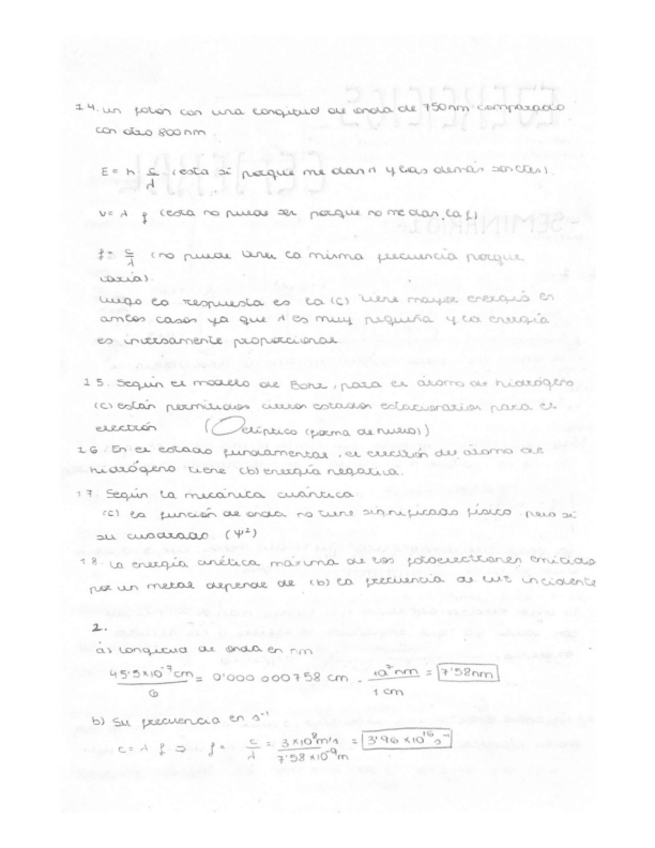 14. un fotón con una longitud de onda de 750nm comparado
con otro 800nm
E = h c/λ (esta sí porque me dan λ y las demás son ctes).
v = λ f (esta no puede ser porque no me dan la f)
f = c/λ (no puede tener la misma frecuencia porque
varía).
Luego la respuesta es la (c) tiene mayor energía en
ambos casos ya que λ es muy pequeña y la energía
es inversamente proporcional
15. Según el modelo de Bohr, para el átomo de hidrógeno
(c) están permitidos ciertos estados estacionarios para el
electrón ( elíptico (forma de huevo))
16. En el estado fundamental, el electrón del átomo de
hidrógeno tiene (b) energía negativa.
17. Según la mecánica cuántica
(c) la función de onda no tiene significado físico pero sí
su cuadrado (Ψ²)
18. La energía cinética máxima de los fotoelectrones emitidos
por un metal depende de (b) la frecuencia de luz incidente
2.
a) Longitud de onda en nm
45'5×10⁻⁷cm / 6 = 0'000 000758 cm · 10⁷nm / 1cm = 7'58nm
b) Su frecuencia en s⁻¹
c = λ f ⇒ f = c/λ = 3×10⁸m/s / 7'58×10⁻⁹m = 3'96×10¹⁶s⁻¹